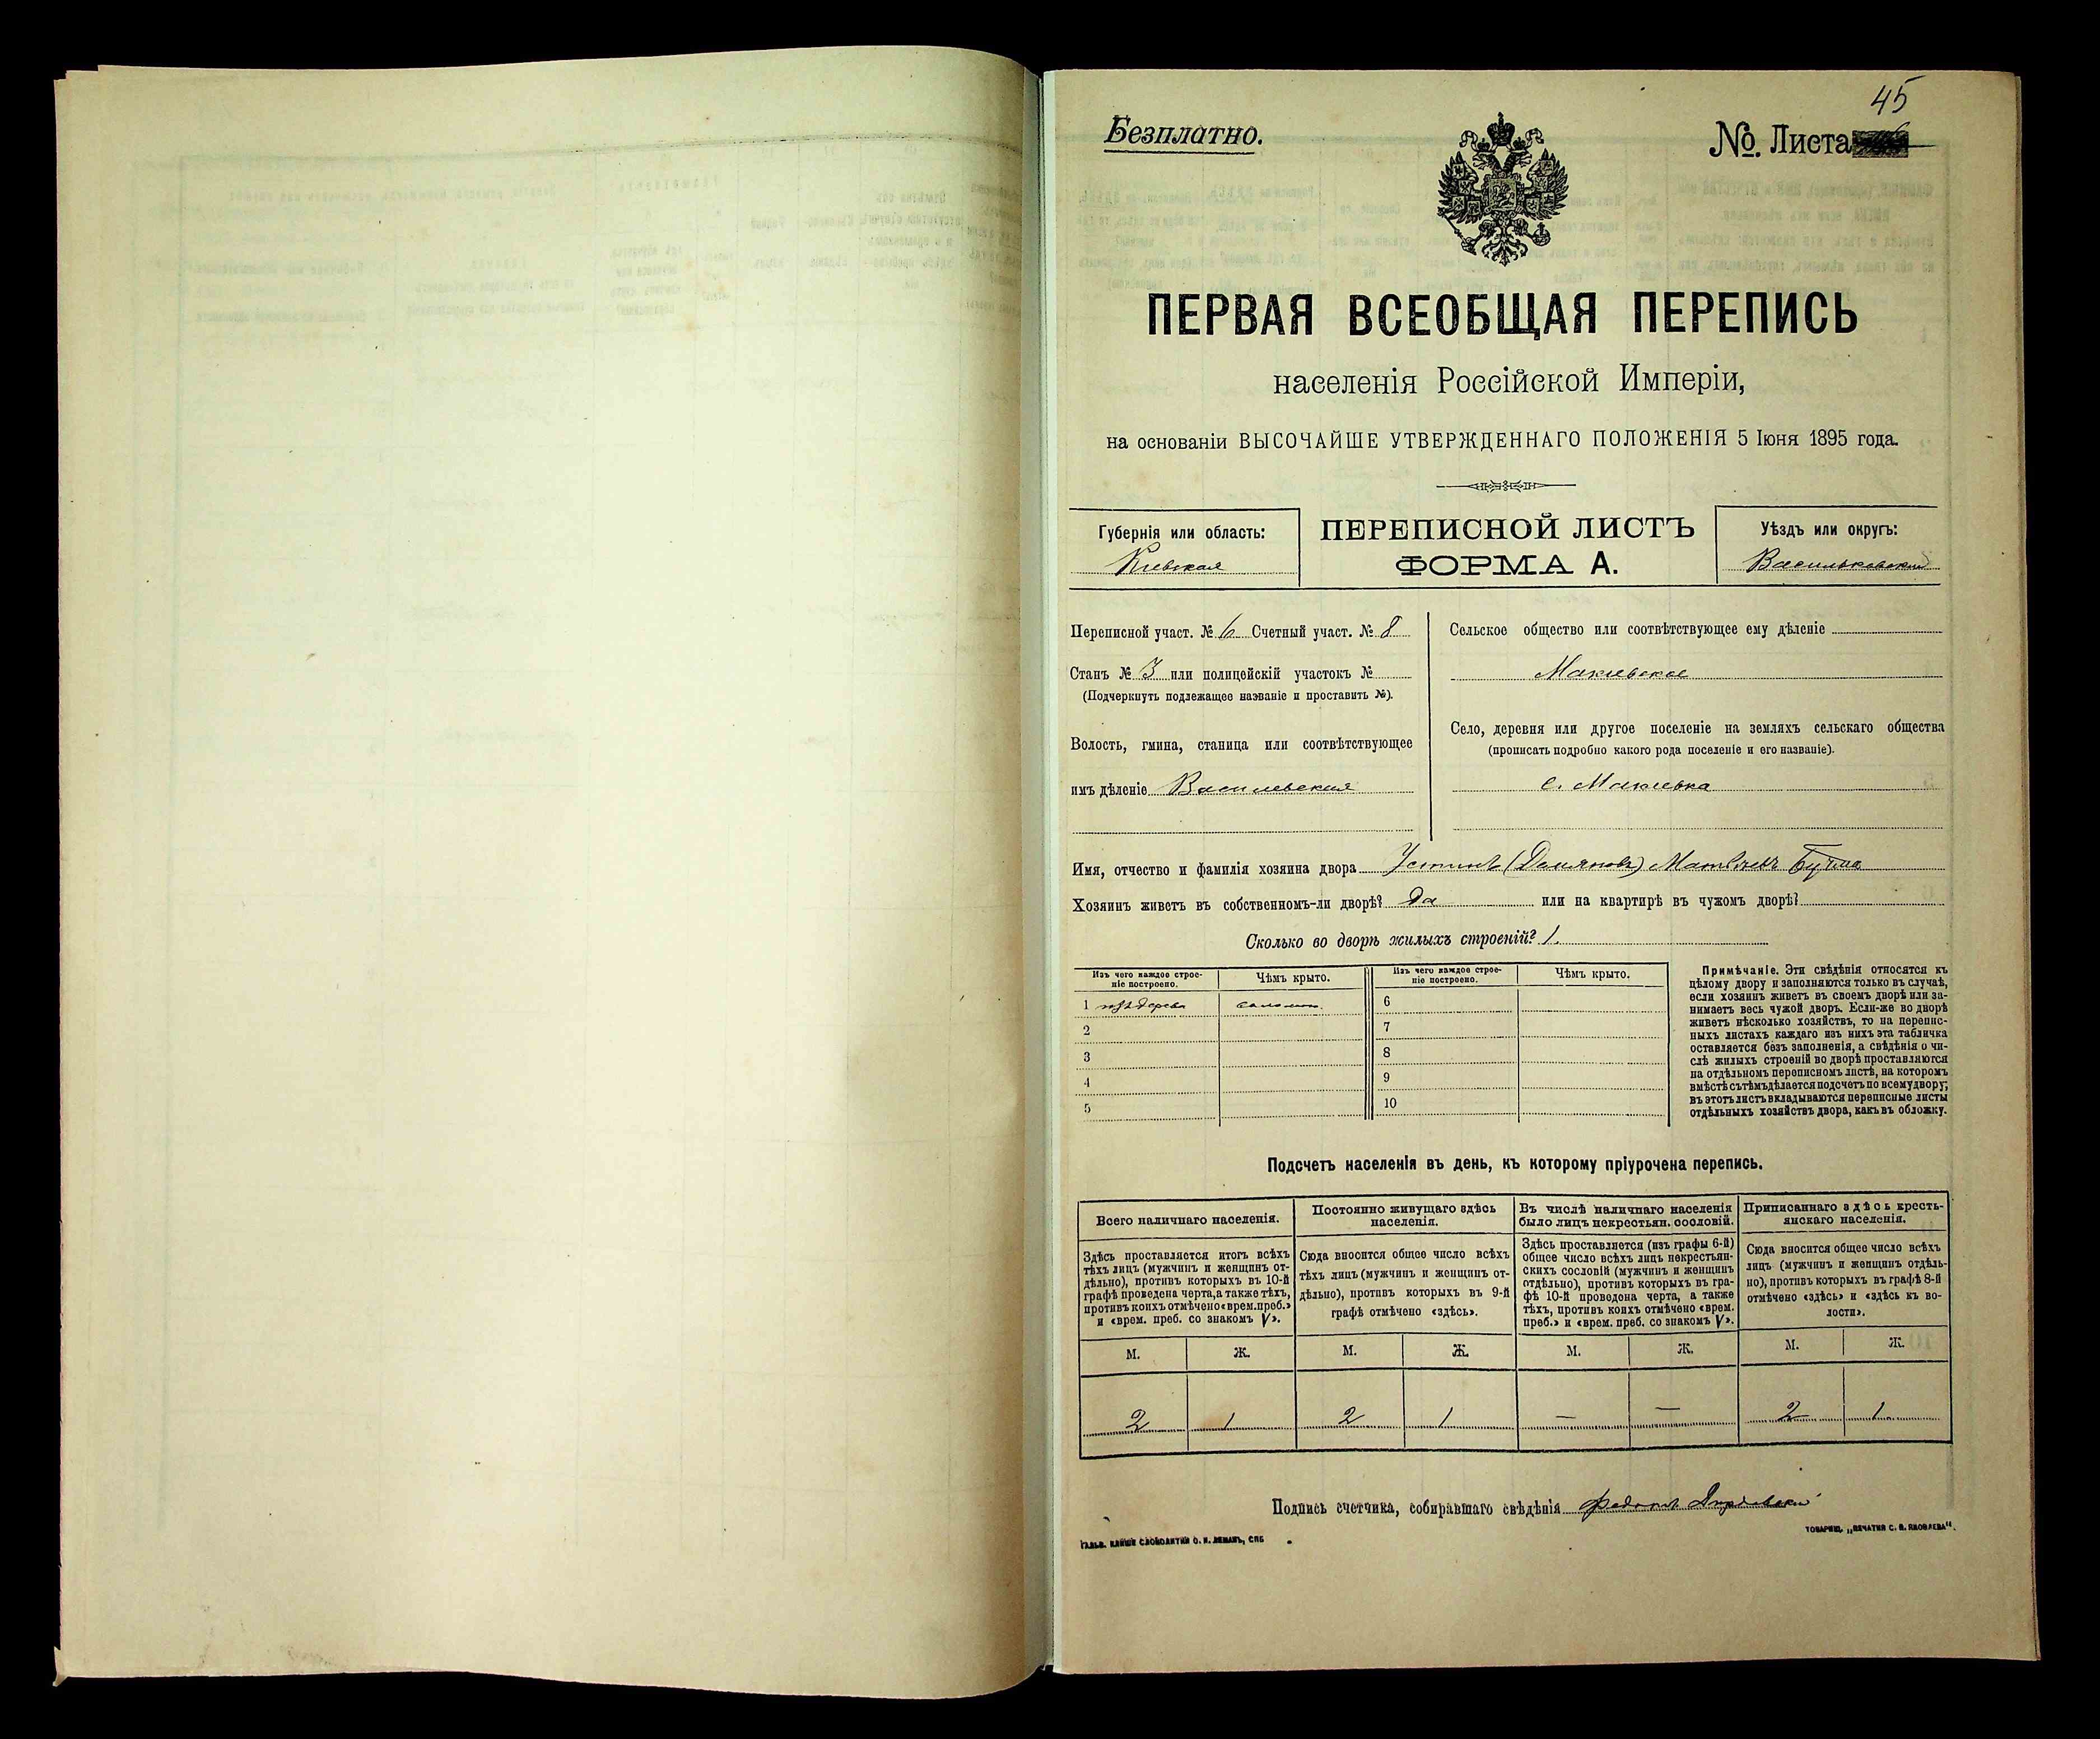 45
Безплатно.
№. Листа
ПЕРВАЯ ВСЕОБЩАЯ ПЕРЕПИСЬ
населенія Россійской Имперіи,
на основаніи ВЫСОЧАЙШЕ УТВЕРЖДЕННАГО ПОЛОЖЕНІЯ 5 Іюня 1895 года.
Губернія или область:
Кіевская
ПЕРЕПИСНОЙ ЛИСТЪ
ФОРМА А.
Уѣздъ или округъ:
Васильковский
Переписной участ. № 6 Счетный участ. № 8
Станъ № 3 или полицейскій участокъ №
(Подчеркнуть подлежащее названіе и проставить №).
Волость, гмина, станица или соотвѣтствующее
имъ дѣленіе Василевская
Сельское общество или соотвѣтствующее ему дѣленіе
Макіевское
Село, деревня или другое поселеніе на земляхъ сельскаго общества
(прописать подробно какого рода поселеніе и его названіе).
с. Макіевка
Имя, отчество и фамилія хозяина двора Устинъ (Демяновъ) Матвѣевъ
Хозяинъ живетъ въ собственномъ-ли дворѣ? Да или на квартирѣ въ чужомъ дворѣ?
Сколько во дворѣ жилыхъ строеній? 1.
Изъ чего каждое строе-
ніе построено.
Чѣмъ крыто.
Изъ чего каждое строе-
ніе построено.
Чѣмъ крыто.
1 изъ дерева соломою.
2
3
4
5
6
7
8
9
10
Примѣчаніе. Эти свѣдѣнія относятся къ
цѣлому двору и заполняются только въ случаѣ,
если хозяинъ живетъ въ своемъ дворѣ или за-
нимаетъ весь чужой дворъ. Если-же во дворѣ
живетъ нѣсколько хозяйствъ, то на перепис-
ныхъ листахъ каждаго изъ нихъ эта табличка
оставляется безъ заполненія, а свѣдѣнія о чи-
слѣ жилыхъ строеній во дворѣ проставляются
на отдѣльномъ переписномъ листѣ, на которомъ
вмѣстѣ съ тѣмъ дѣлается подсчетъ по всему двору;
въ этотъ листъ вкладываются переписные листы
отдѣльныхъ хозяйствъ двора, какъ въ обложку.
Подсчетъ населенія въ день, къ которому пріурочена перепись.
Всего наличнаго населенія.
Здѣсь проставляется итогъ всѣхъ
тѣхъ лицъ (мужчинъ и женщинъ от-
дѣльно), противъ которыхъ въ 10-й
графѣ проведена черта, а также тѣхъ,
противъ коихъ отмѣчено «врем. преб.»
и «врем. преб. со знакомъ V».
Постоянно живущаго здѣсь
населенія.
Сюда вносится общее число всѣхъ
тѣхъ лицъ (мужчинъ и женщинъ от-
дѣльно), противъ которыхъ въ 9-й
графѣ отмѣчено «здѣсь».
Въ числѣ наличнаго населенія
было лицъ некрестьян. сословій.
Здѣсь проставляется (изъ графы 6-й)
общее число всѣхъ лицъ некрестьян-
скихъ сословій (мужчинъ и женщинъ
отдѣльно), противъ которыхъ въ гра-
фѣ 10-й проведена черта, а также
тѣхъ, противъ коихъ отмѣчено «врем.
преб.» и «врем. преб. со знакомъ V».
Приписаннаго здѣсь кресть-
янскаго населенія.
Сюда вносится общее число всѣхъ
лицъ (мужчинъ и женщинъ отдѣль-
но), противъ которыхъ въ графѣ 8-й
отмѣчено «здѣсь» и «здѣсь къ во-
лости».
М. Ж. М. Ж. М. Ж. М. Ж.
2 1 2 1 — — 2 1
Подпись счетчика, собиравшаго свѣдѣнія
ТОВАРИЩ. „ПЕЧАТНЯ С. П. ЯКОВЛЕВА".